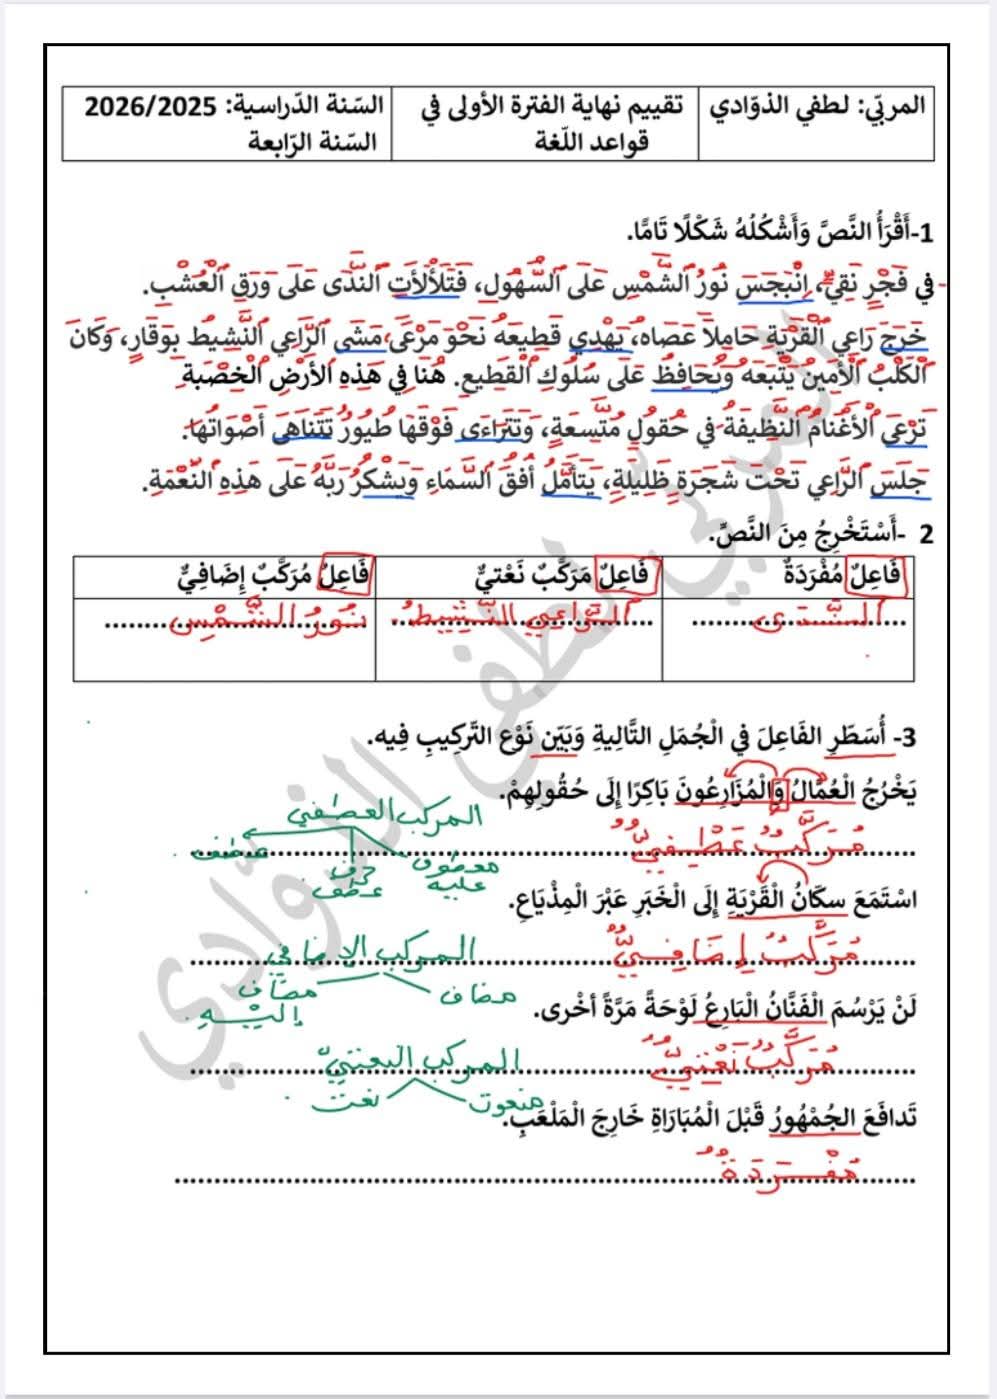 المربّي: لطفي الذوّادي
تقييم نهاية الفترة الأولى في
قواعد اللّغة
السّنة الدّراسية: 2026/2025
السّنة الرّابعة
1-أَقْرَأُ النَّصَّ وَأَشْكُلُهُ شَكْلًا تَامًّا.
في فَجْرٍ نَقِيٍّ، اِنْبَجَسَ نُورُ الشَّمْسِ عَلَى السُّهُولِ، فَتَلَأْلَأَتِ النَّدَى عَلَى وَرَقِ الْعُشْبِ.
خَرَجَ رَاعِي الْقَرْيَةِ حَامِلًا عَصَاه، يَهْدِي قَطِيعَهُ نَحْوَ مَرْعًى، مَشَى الرَّاعِي النَّشِيطُ بِوَقَارٍ، وَكَانَ
الْكَلْبُ الْأَمِينُ يَتْبَعُهُ وَيُحَافِظُ عَلَى سُلُوكِ الْقَطِيعِ. هُنَا فِي هَذِهِ الْأَرْضِ الْخَصْبَةِ
تَرْعَى الْأَغْنَامُ النَّظِيفَةُ فِي حُقُولٍ مُتَّسِعَةٍ، وَتَتَرَاءَى فَوْقَهَا طُيُورٌ تَتَنَاهَى أَصْوَاتُهَا.
جَلَسَ الرَّاعِي تَحْتَ شَجَرَةٍ ظَلِيلَةٍ، يَتَأَمَّلُ أُفُقَ السَّمَاءِ وَيَشْكُرُ رَبَّهُ عَلَى هَذِهِ النِّعْمَةِ.
2 -أَسْتَخْرِجُ مِنَ النَّصِّ.
فَاعِلٌ مُفْرَدَةٌ
فَاعِلٌ مَرَكَّبٌ نَعْتيٌّ
فَاعِلٌ مُرَكَّبٌ إِضَافِيٌّ
النَّدَى
الرَّاعِي النَّشِيطُ
نُورُ الشَّمْسِ
3- أُسَطِّرِ الفَاعِلَ في الْجُمَلِ التَّالِيةِ وَبَيّن نَوْع التّركِيبِ فِيه.
يَخْرُجُ الْعُمَّالُ وَالْمُزَارِعُونَ بَاكِرًا إِلَى حُقُولِهِمْ.
مُرَكَّبٌ عَطْفِيٌّ
المركب العطفي
معطوف عليه
حرف عطف
عطف
اسْتَمَعَ سكّانُ الْقَرْيَةِ إِلَى الْخَبَرِ عَبْرَ الْمِذْيَاعِ.
مُرَكَّبٌ إِضَافِيٌّ
المركب الإضافي
مضاف
مضاف إليه
لَنْ يَرْسُمَ الْفَنَّانُ الْبَارِعُ لَوْحَةً مَرَّةً أخْرى.
مُرَكَّبٌ نَعْتِيٌّ
المركب النعتيّ
منعوت
نعت
تَدافَعَ الجُمْهُورُ قَبْلَ الْمُبَارَاةِ خَارِجَ الْمَلْعَبِ.
مُفْرَدَةٌ
المربّي لطفي الذوّادي